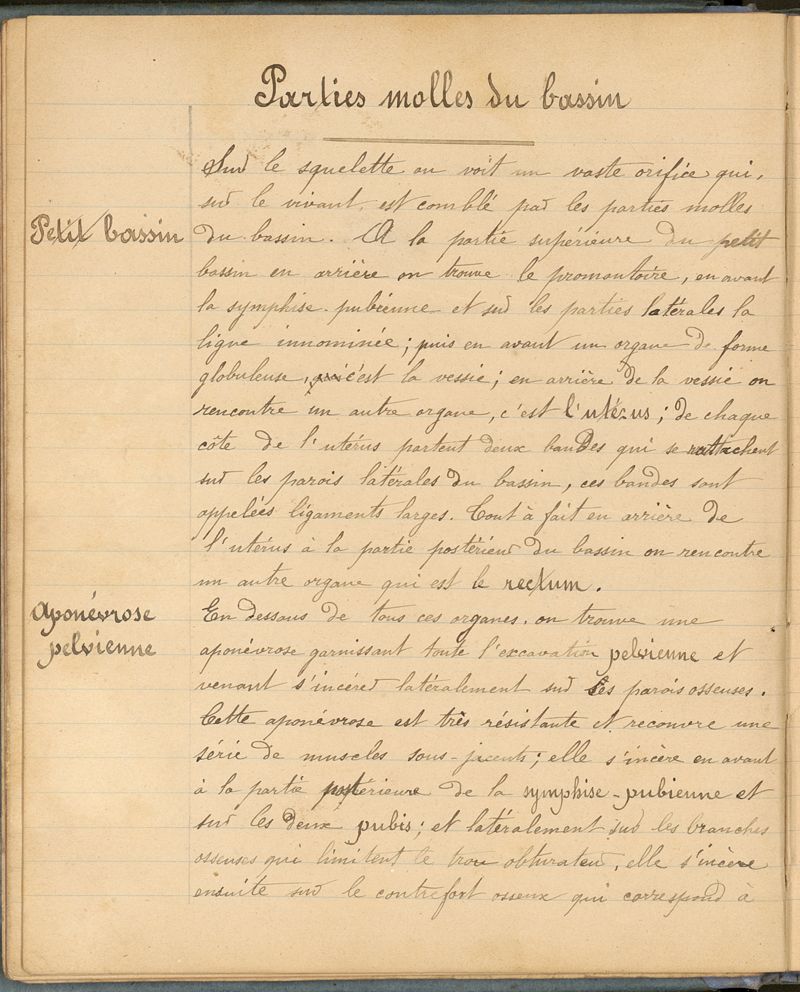 Parties molles du bassin
Sur le squelette on voit un vaste orifice qui,
sur le vivant, est comblé par les parties molles
Petit bassin
du bassin. A la partie supérieure du petit
bassin en arrière on trouve le promontoire, en avant
la symphise pubienne et sur les parties latérales la
ligne innominée ; puis en avant un organe de forme
globuleuse, c'est la vessie ; en arrière de la vessie on
rencontre un autre organe, c'est l'utérus ; de chaque
côte de l'utérus partent deux bandes qui se rattachent
sur les parois latérales du bassin, ces bandes sont
appelées ligaments larges. Tout à fait en arrière de
l'utérus à la partie postérieur du bassin on rencontre
un autre organe qui est le rectum.
Aponévrose
pelvienne
En dessous de tous ces organes, on trouve une
aponévrose garnissant toute l'excavation pelvienne et
venant s'incérer latéralement sur les parois osseuses.
Cette aponévrose est très résistante et recouvre une
série de muscles sous-jacents ; elle s'incère en avant
à la partie postérieure de la symphise-pubienne et
sur les deux pubis ; et latéralement sur les branches
osseuses qui limitent le trou obturateur, elle s'incère
ensuite sur le contrefort osseux qui correspond à